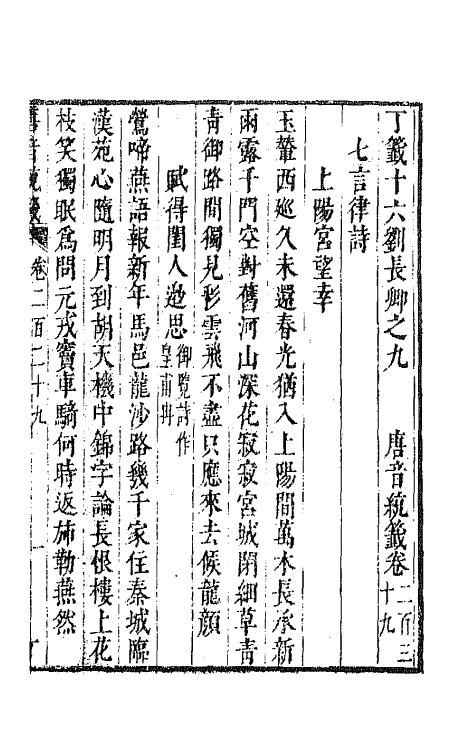 丁籤十六劉長卿之九　唐音統籤卷二百三十九
七言律詩
上陽宮望幸
玉輦西廵久未還春光猶入上陽間萬木長承新
雨露千門空對舊河山深花寂寂宮城閉細草青
青御路間獨見彩雲飛不盡只應來去候龍顔
賦得閨人邉思御覽詩作皇甫冉
鶯啼燕語報新年馬邑龍沙路幾千家住秦城臨
漢苑心隨明月到胡天機中錦字論長恨樓上花
枝笑獨眠爲問元戎竇車騎何時返斾勒燕然
卷二百二十九　一